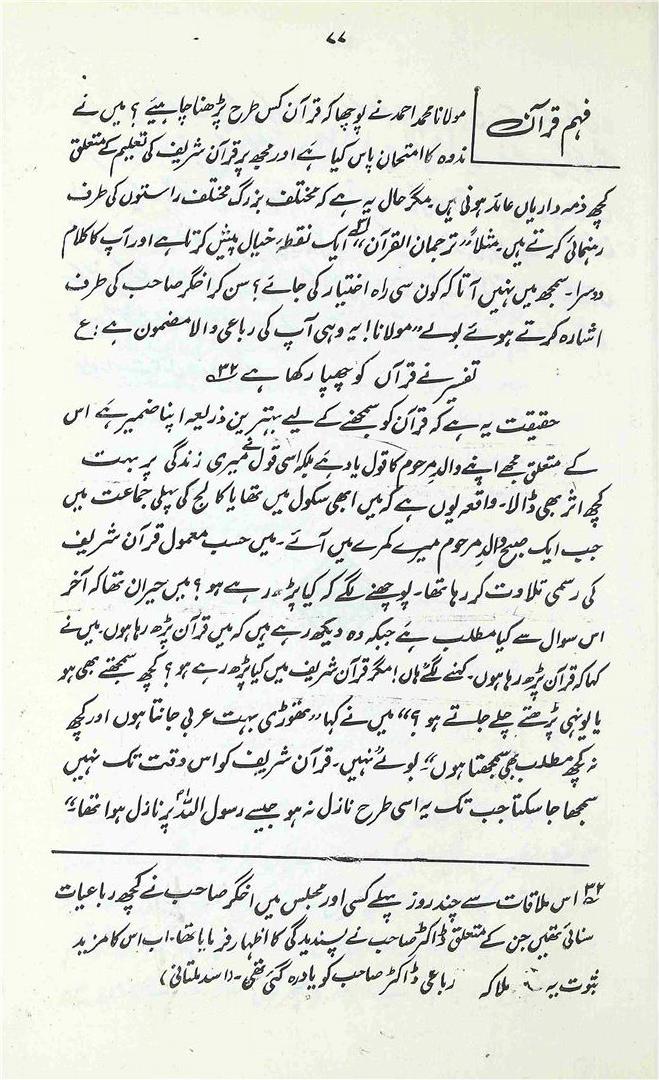 ۷۷
فہم قرآن
مولانا محمد احمد نے پوچھا کہ قرآن کس طرح پڑھنا چاہیئے ؟ میں نے
ندوہ کا امتحان پاس کیا ہے اور مجھ پر قرآن شریف کی تعلیم کے متعلق
کچھ ذمہ داریاں عائد ہوتی ہیں۔ مگر حال یہ ہے کہ مختلف بزرگ مختلف راستوں کی طرف
رہنمائی کرتے ہیں۔ مثلاً "ترجمان القرآن" ایک نقطۂ خیال پیش کرتا ہے اور آپ کا کلام
دوسرا۔ سمجھ میں نہیں آتا کہ کون سی راہ اختیار کی جائے؟ سن کر اخگر صاحب کی طرف
اشارہ کرتے ہوئے بولے "مولانا! یہ وہی آپ کی رباعی والا مضمون ہے : ع
تفسیر نے قرآں کو چھپا رکھا ہے ۳۲
حقیقت یہ ہے کہ قرآن کو سمجھنے کے لیے بہترین ذریعہ اپنا ضمیر ہے اس
کے متعلق مجھے اپنے والدِ مرحوم کا قول یاد ہے بلکہ اسی قول نے میری زندگی پر بہت
کچھ اثر بھی ڈالا۔ واقعہ یوں ہے کہ میں ابھی سکول میں تھا یا کالج کی پہلی جماعت میں
جب ایک صبح والدِ مرحوم میرے کمرے میں آئے۔ میں حسب معمول قرآن شریف
کی رسمی تلاوت کر رہا تھا۔ پوچھنے لگے کہ کیا پڑھ رہے ہو ؟ میں حیران تھا کہ آخر
اس سوال سے کیا مطلب ہے جبکہ وہ دیکھ رہے ہیں کہ میں قرآن پڑھ رہا ہوں۔ میں نے
کہا کہ قرآن پڑھ رہا ہوں۔ کہنے لگے ہاں! مگر قرآن شریف میں کیا پڑھ رہے ہو ؟ کچھ سمجھتے بھی ہو
یا یونہی پڑھتے چلے جاتے ہو ؟" میں نے کہا "تھوڑی بہت عربی جانتا ہوں اور کچھ
نہ کچھ مطلب بھی سمجھتا ہوں"۔ بولے نہیں۔ قرآن شریف کو اس وقت تک نہیں
سمجھا جا سکتا جب تک یہ اسی طرح نازل نہ ہو جیسے رسول اللہؐ پر نازل ہوا تھا"
۳۲ اس ملاقات سے چند روز پہلے کسی اور مجلس میں اخگر صاحب نے کچھ رباعیات
سنائی تھیں جن کے متعلق ڈاکٹر صاحب نے پسندیدگی کا اظہار فرمایا تھا۔ اب اس کا مزید
ثبوت یہ ملا کہ رباعی ڈاکٹر صاحب کو یاد رہ گئی تھی۔ (اسد ملتانی)